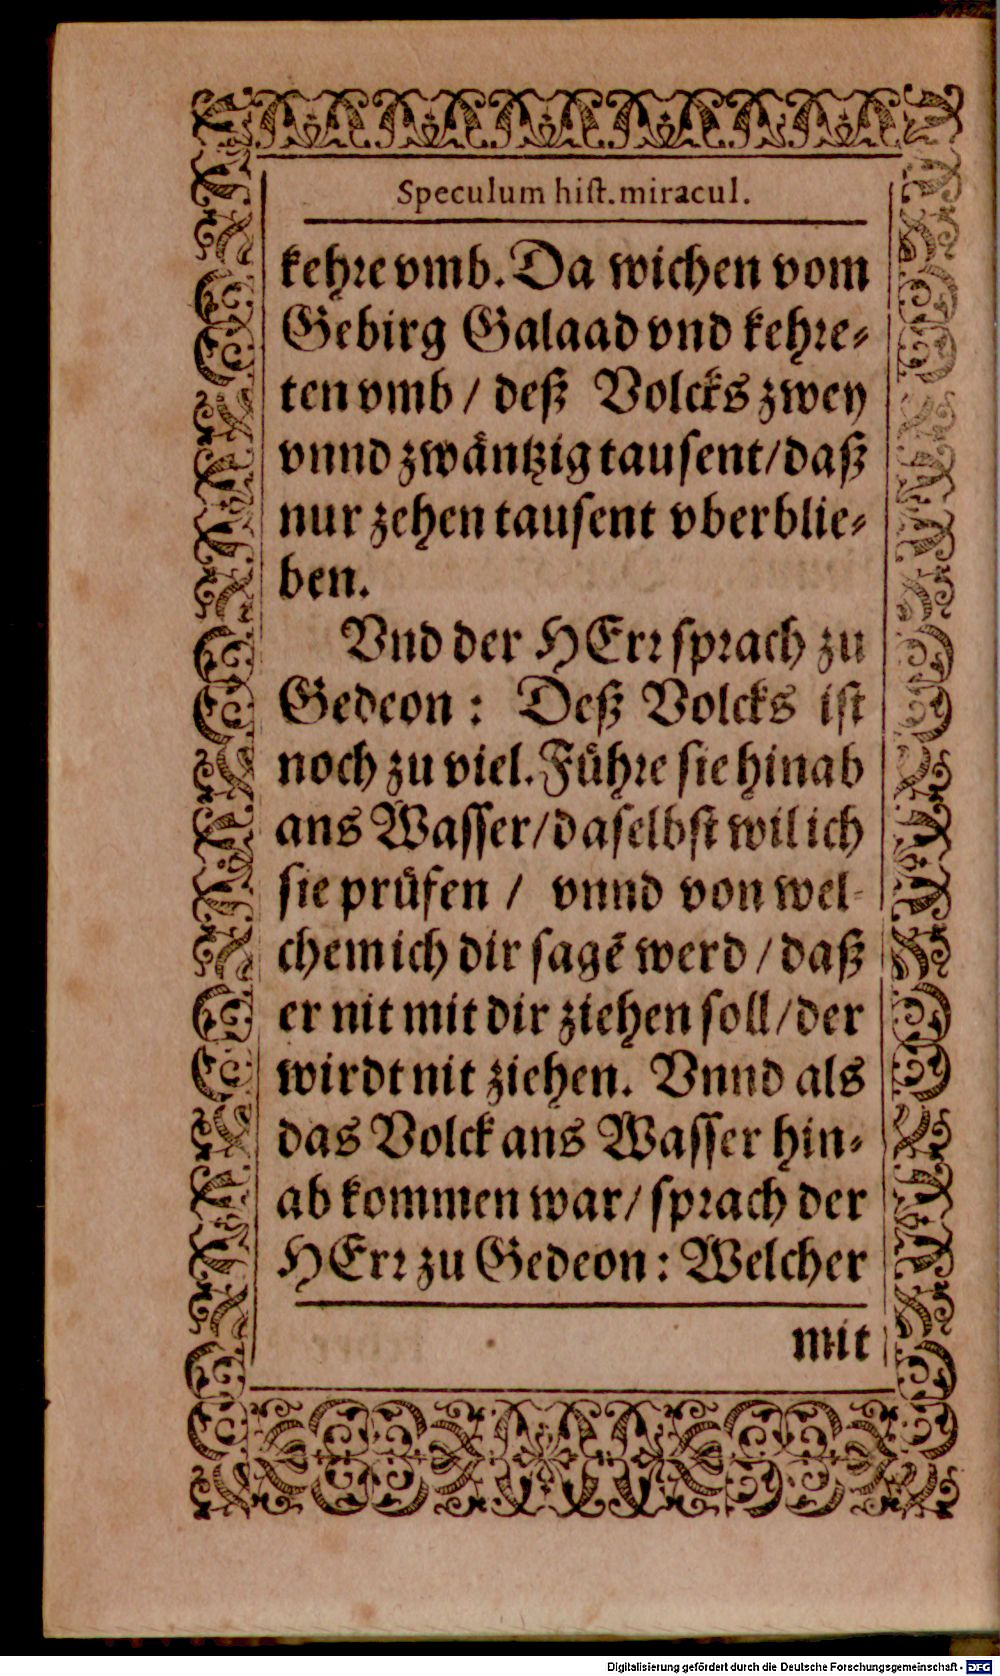 Speculum hiſt. miracul.
kehꝛe vmb. Da wichen vom
Gebirg Galaad vnd kehꝛe⸗
ten vmb / deß Volcks zwey
vnnd zwaͤntzig tauſent / daß
nur zehen tauſent vberblie⸗
ben.
Vnd der HErꝛ ſpꝛach zu
Gedeon : Deß Volcks iſt
noch zu viel. Fuͤhꝛe ſie hinab
ans Waſſer / daſelbſt wil ich
ſie pruͤfen / vnnd von wel⸗
chem ich dir ſagē werd / daß
er nit mit dir ziehen ſoll / der
wirdt nit ziehen. Vnnd als
das Volck ans Waſſer hin⸗
ab kommen war / ſpꝛach der
HErꝛ zu Gedeon : Welcher
mit
Digitalisierung gefördert durch die Deutsche Forschungsgemeinschaft - DFG